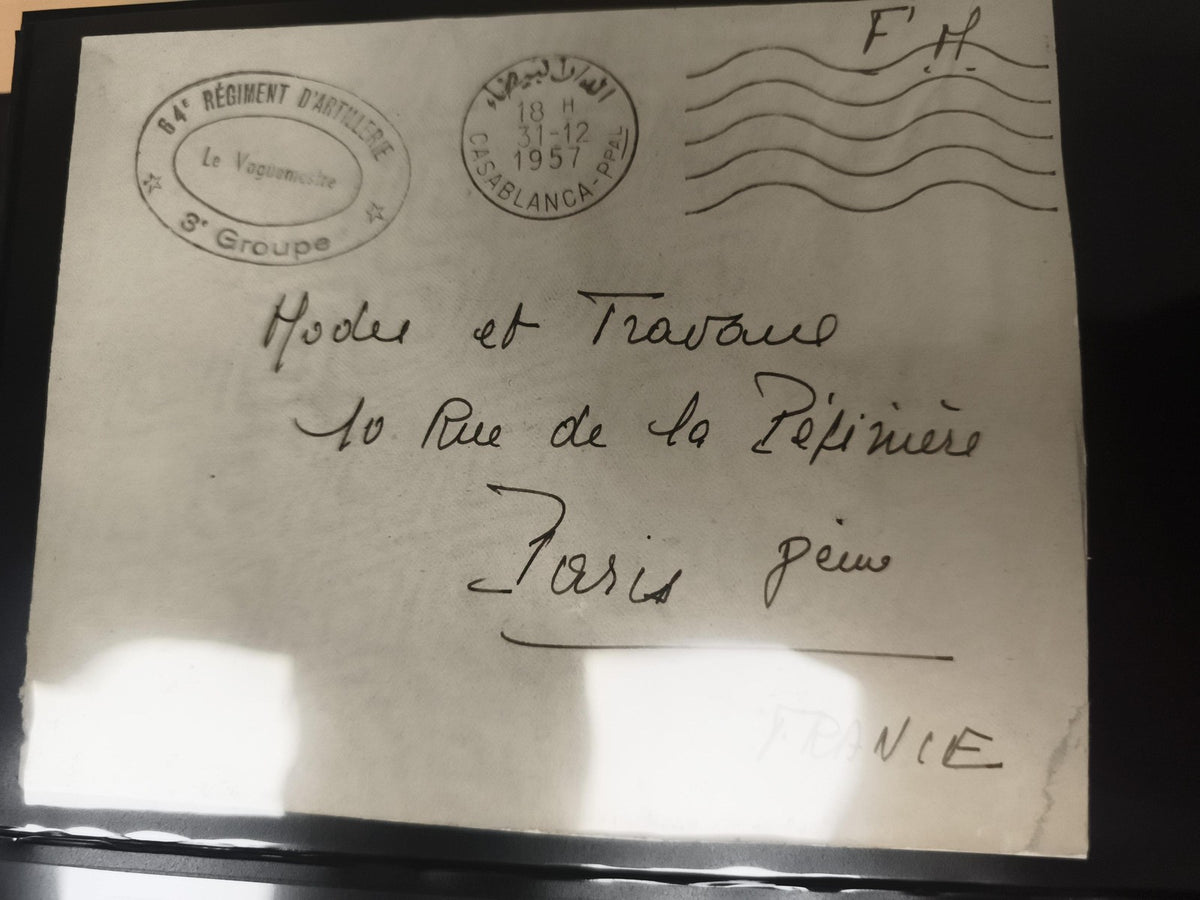 F. M.
64e RÉGIMENT D'ARTILLERIE
Le Vaguemestre
3e Groupe
الدار البيضاء
18 H
31-12
1957
CASABLANCA-PPAL
Modes et Travaux
10 Rue de la Pépinière
Paris 8ème
FRANCE